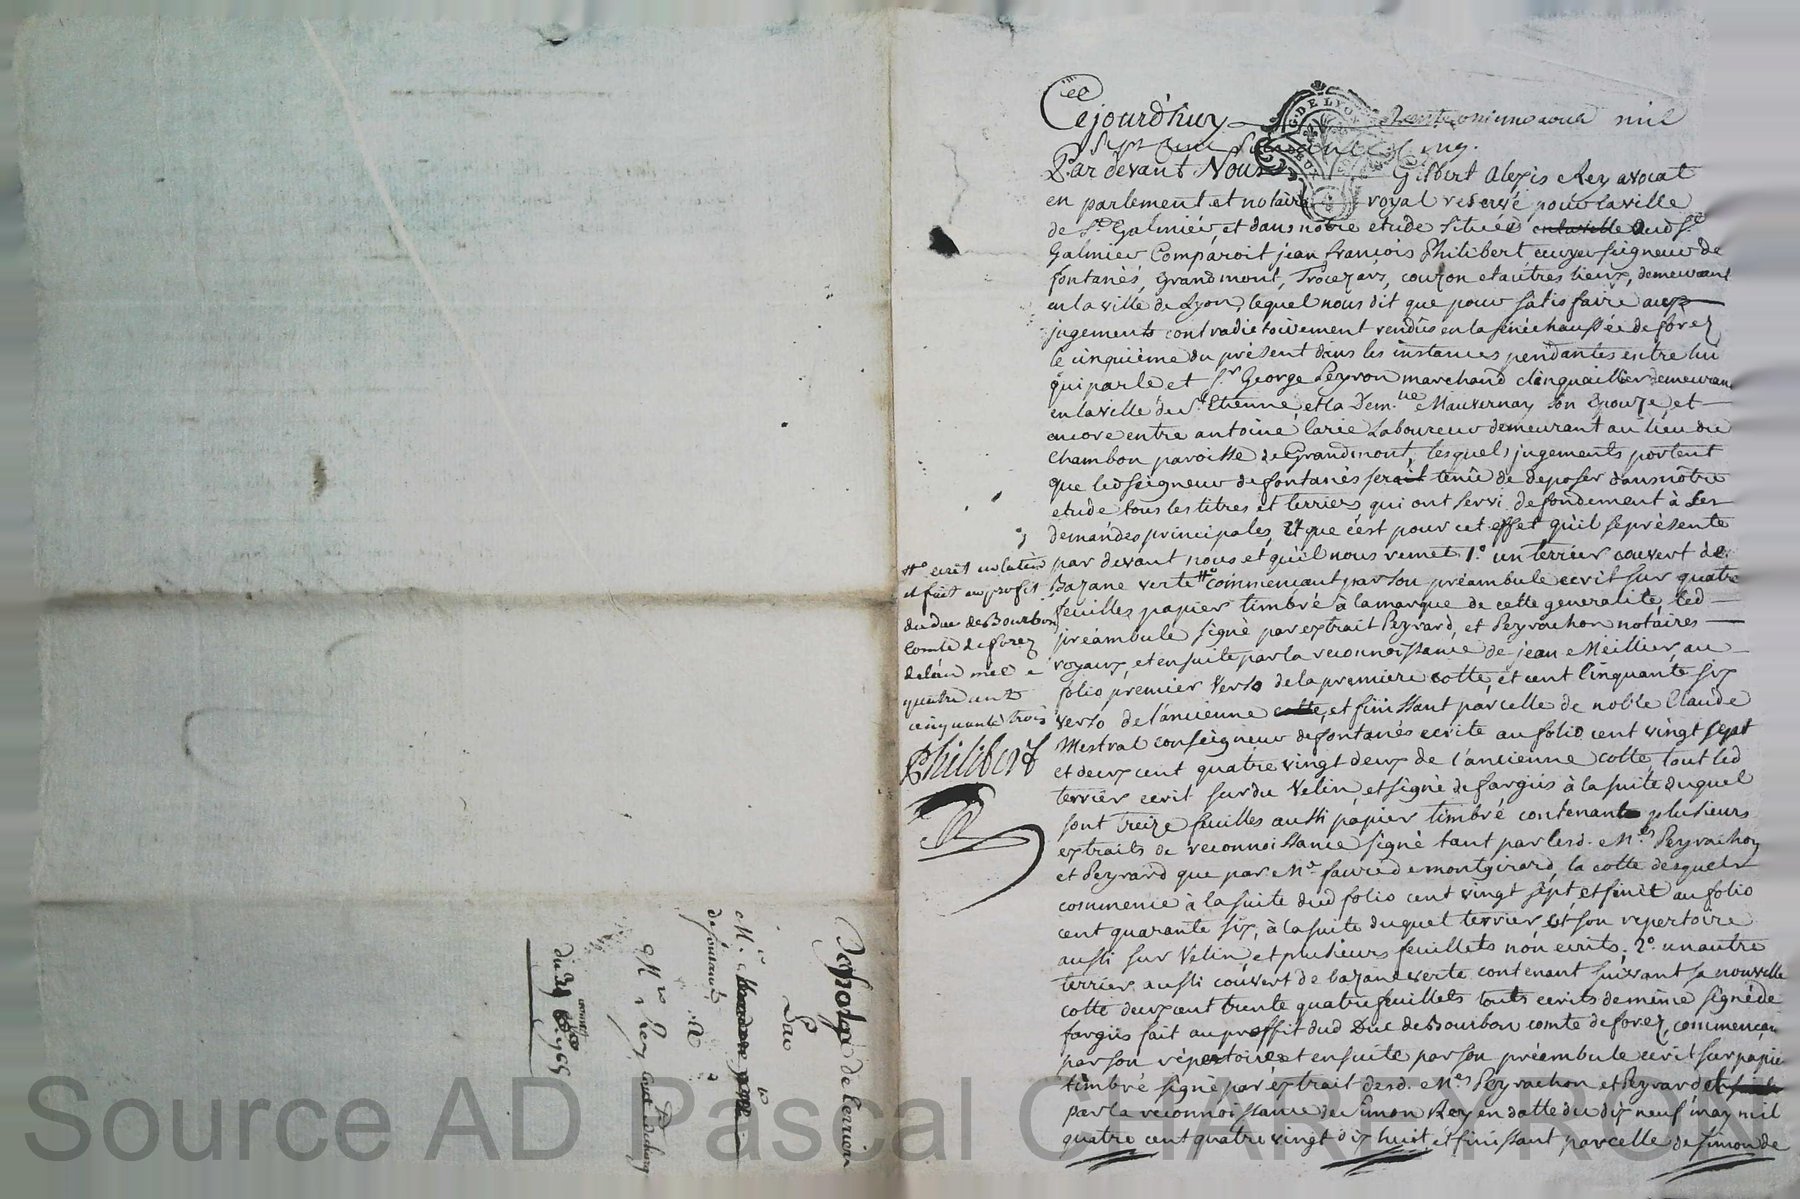 Cejourd'huy trente onieme aout mil
Sept Cent Soixante Cinq.
G. DE LYON
Par devant Nous Gilbert Alexis Rey avocat
en parlement et notaire royal reservé pour la ville
de St Galmier, et dans notre etude située audt St
Galmier Comparoit jean françois Philibert ecuyer seigneur de
fontanès, grandmont, Trocezard, couzon et autres lieux, demeurant
en la ville de Lyon, lequel nous dit que pour satisfaire aux
jugements contradictoirement rendûs en la sénéchaussée de forez
le cinquième du présent dans les instances pendantes entre lui
qui parle et Sr George Peyron marchand clinquaillier demeurant
en la ville de St Etienne, et la Demlle Mauvernay son Epouze, et
encore entre antoine larie Laboureur demeurant au lieu du
Chambon paroisse de Grandmont, lesquels jugements portent
que led seigneur de fontanès serait tenû de deposer dans nôtre
etude tous les titres et terriers qui ont servi de fondement à ses
demandes principales, et que c'est pour cet effet qu'il se présente
par devant nous et qu'il nous remet 1.° un terrier couvert de
Bazane verte # commençant par son préambule ecrit sur quatre
feuilles papier timbré à la marque de cette generalité, led
préambule signé par extrait Peyrard, et Peyrachon notaires
royaux, et ensuite par la reconnoissance de jean Meillier, au
folio premier verso de la premiere cotte, et cent Cinquante six
verso de l'ancienne cotte, et finissant par celle de noble Claude
Mestral conseigneur de fontanès ecrite au folio cent vingt sept
et deux cent quatre vingt deux de l'ancienne cotte, tout led
terrier ecrit sur du Velin, et signé de fargiis à la suite duquel
sont Treize feuilles aussi papier timbré contenant plusieurs
extraits de reconnoissance signé tant par lesd. Mes Peyrachon
et Peyrard que par Me faure de montgirard, la cotte desquels
commence à la suite dud folio cent vingt sept, et finit au folio
cent quarante six, à la suite duquel terrier est son repertoire
aussi sur Velin, et plusieurs feuillets non ecrits; 2.° un autre
terrier aussi couvert de bazane verte contenant suivant sa nouvelle
cotte deux cent trente quatre feuillets touts ecrits de même signé de
fargiis fait au proffit dud Duc de Bourbon comte de forez, commençant
par son répertoire et ensuite par son préambule ecrit sur papier
timbré signé par extrait desd. Mes Peyrachon et Peyrard et
par la reconnoissance de Simon Rey en datte du dix neuf may mil
quatre cent quatre vingt dix huit et finissant par celle de simon de
# ecrit en latin
et fait au profit
du duc de Bourbon
Comte de forez
de l'an mil
quatre cent
cinquante trois
Philibert
R
Depost de terriers
Par
de fontanés
A
Me Rey
Source AD Pascal CHAREYRON